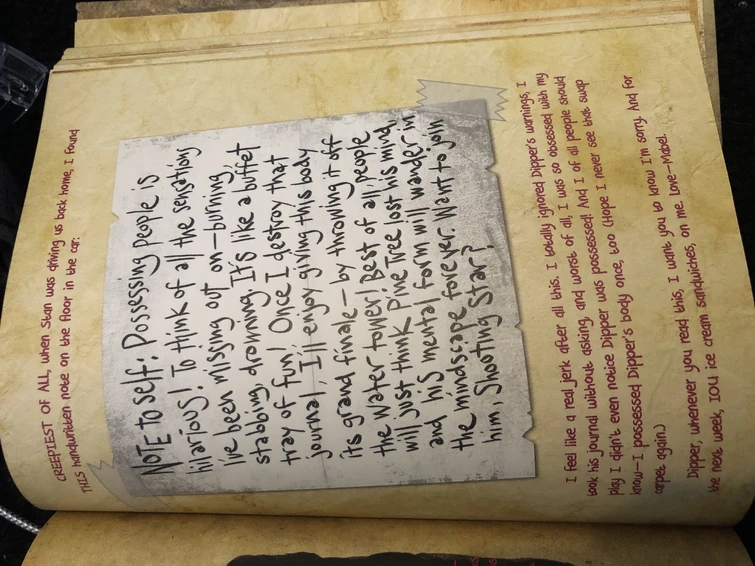 CREEPIEST OF ALL, when Stan was driving us back home, I found
THIS handwritten note on the floor in the car:
NOTE TO SELF: Possessing people is
hilarious! To think of all the sensations
I've been missing out on—burning,
stabbing, drowning. It's like a buffet
tray of fun! Once I destroy that
journal, I'll enjoy giving this body
its grand finale—by throwing it off
the water tower! Best of all, people
will just think Pine Tree lost his mind,
and his mental form will wander in
the mindscape forever. Want to join
him, Shooting Star?
I feel like a real jerk after all this. I totally ignored Dipper's warnings, I
took his journal without asking, and worst of all, I was so obsessed with my
play I didn't even notice Dipper was possessed! And I of all people should
know—I possessed Dipper's body once, too (Hope I never see that swap
carpet again.)
Dipper, whenever you read this, I want you to know I'm sorry. And for
the next week, IOU ice cream sandwiches, on me. Love—Mabel